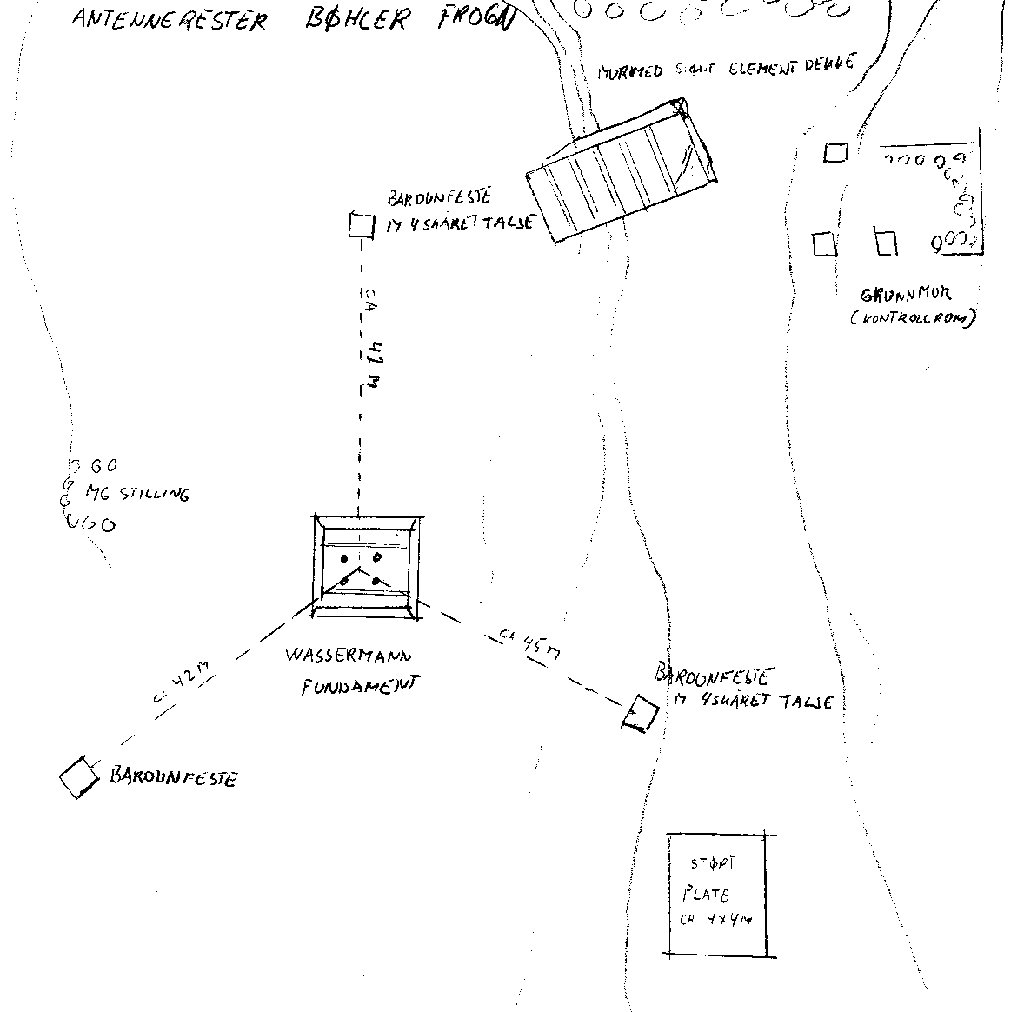 ANTENNERESTER BØHLER FROGN
ELEMENT DEKKE
BARDUNFESTE
M 4 SKÅRET TALJE
GRUNNMUR
(KONTROLLROM)
CA 42 M
MG STILLING
WASSERMANN
FUNDAMENT
CA 45 M
CA 42 M
BARDUNFESTE
M 4 SKÅRET TALJE
BARDUNFESTE
STØPT
PLATE
CA 4X4M